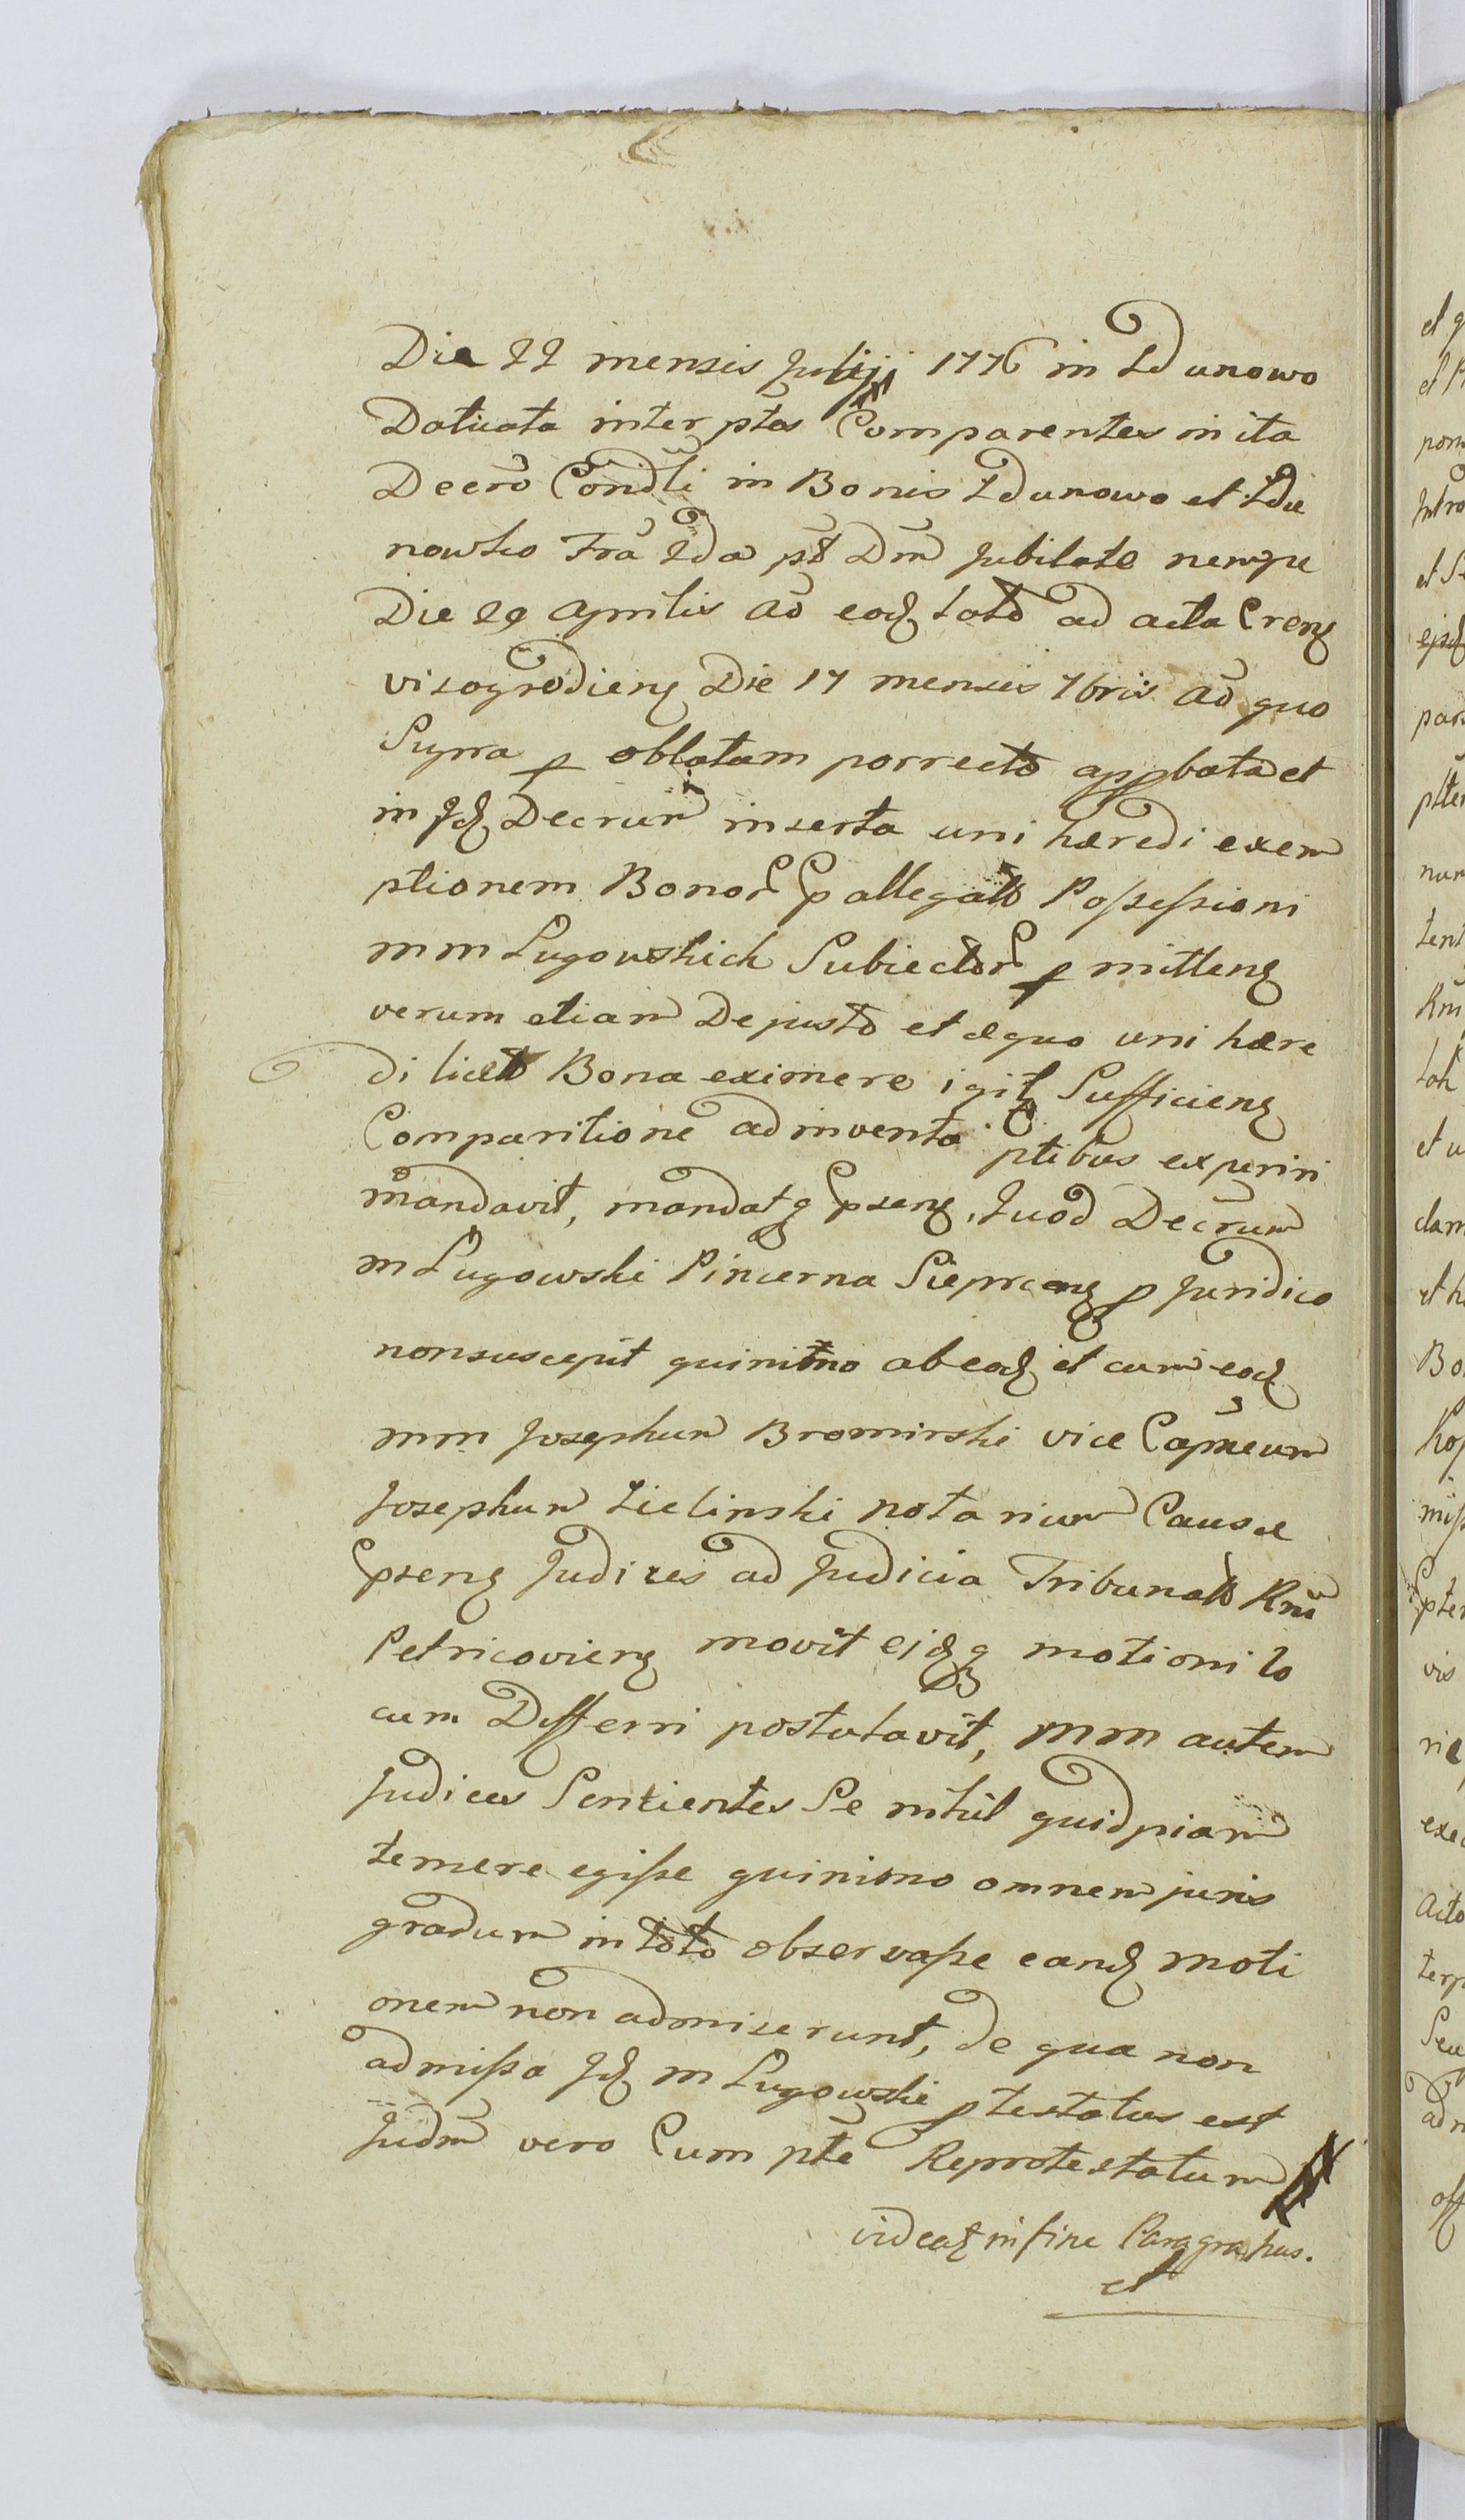 Die 22 mensis Julij 1776 in Zdunowo
Daticata inter ptes Comparentes inita
Decro Condli in Bonis Zdunowo et Zdu
nowko Fra 2da pt Dm Jubilate nempe
Die 29 Aprilis Ao eod lato ad acta Crenz
visogrodienz Die 17 mensis 7bris Ao quo
Supra p oblatam porrecto appbata et
in Jd Decrum inserta uni hæredi exem
ptionem Bonor p allegat Possessioni
mm Lugowskich Subiector p mittenz
verum etiam De justo et æquo uni hære
di licet Bona eximere igit Sufficienz
Comparitione adinventa ptibus experiri
mandavit, mandatq pzenz. Quod Decrum
m Lugowski Pincerna Sieprcenz p Juridico
non suscepit quinimo ab eod et cum eod
mm Josephum Bromirski vice Capneum
Josephum Zielinski notarium Causæ
pzenz Judices ad Judicia Tribunal Rni
Petricovienz movit ejdq motioni lo
cum Differri postulavit, mm autem
Judices Sentientes Se nihil quidpiam
temere egisse quinimo omnem juris
gradum in toto observasse eand moti
onem non admiserunt, de qua non
admissa Jd m Lugowski ptestatus est
Judm vero Cum pte Reprotestatum
videat in fine Paragraphus.
et